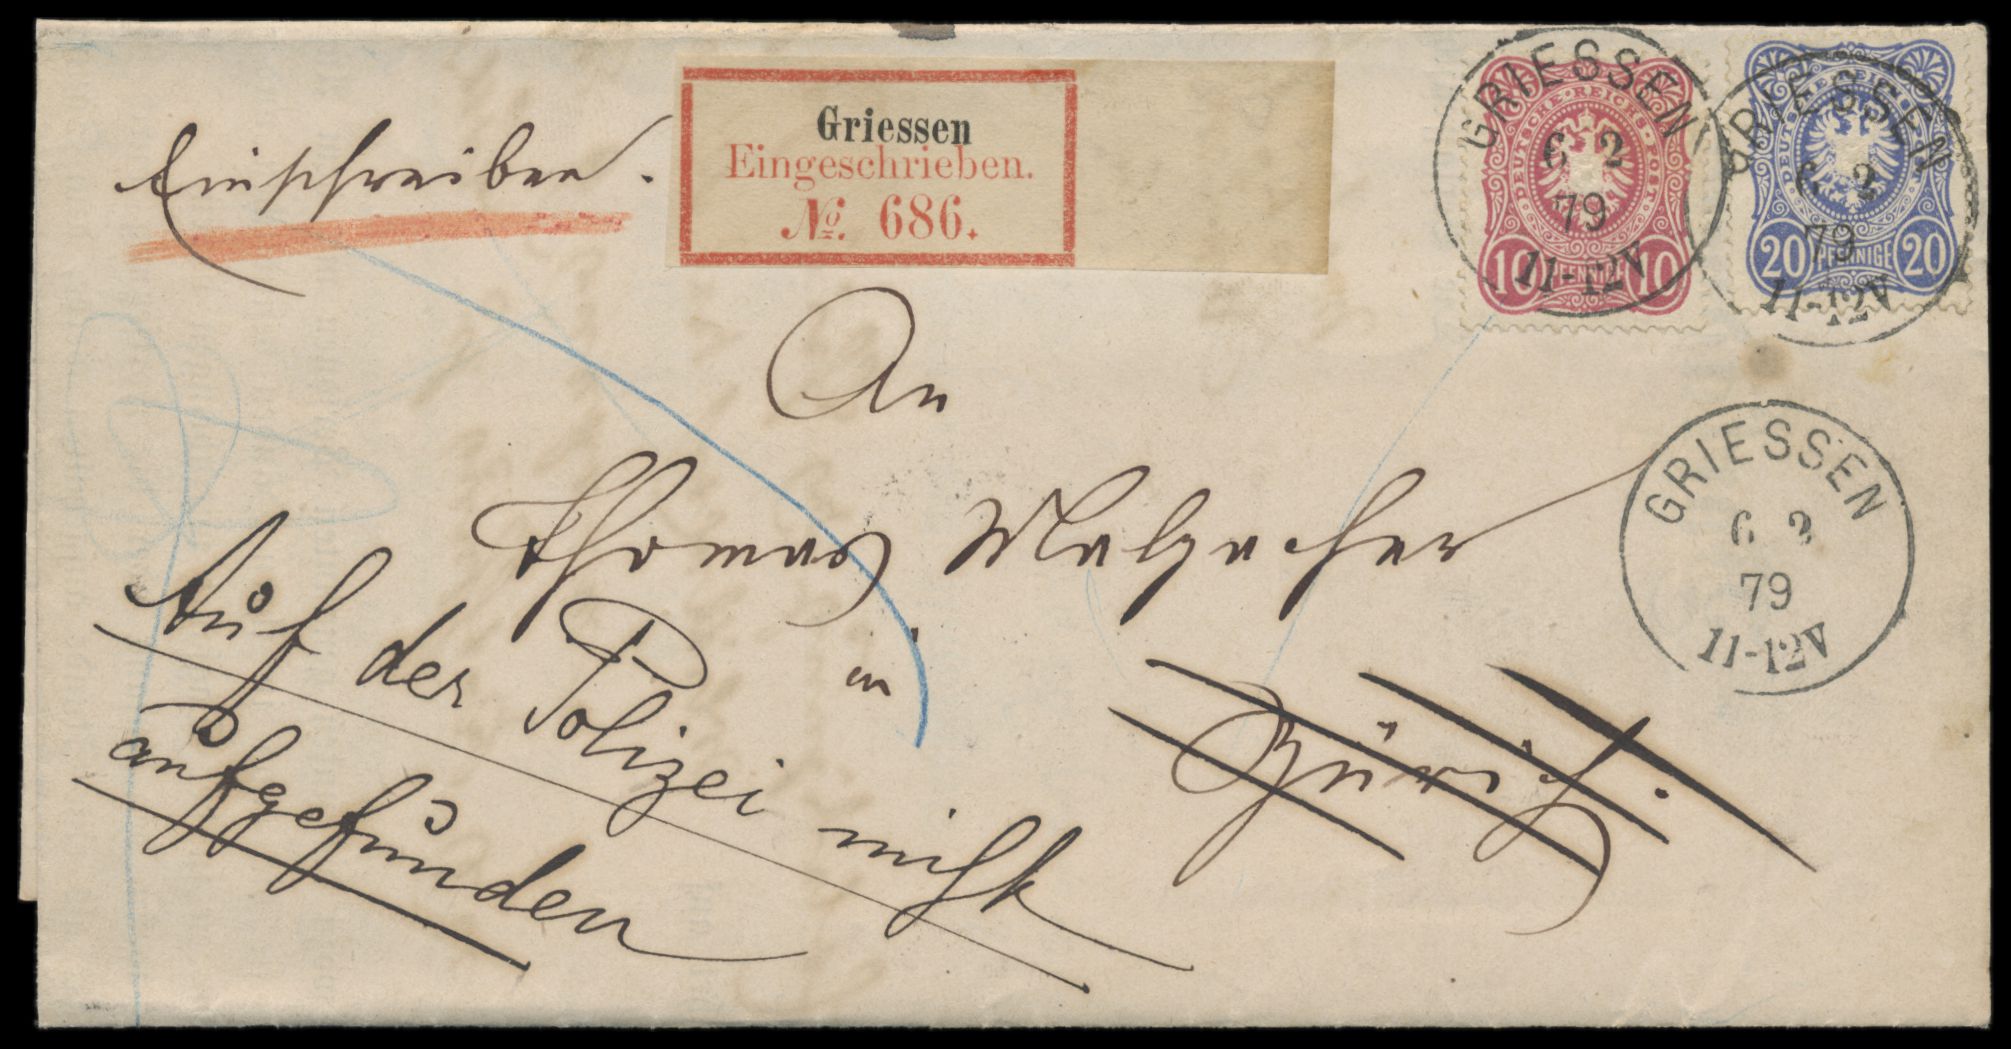 Einschreiben.
Griessen
Eingeschrieben.
№. 686.
GRIESSEN
6 2
79
11-12V
DEUTSCHE REICHS-POST
10 PFENNIG 10
GRIESSEN
6 2
79
11-12V
DEUTSCHE REICHS-POST
20 PFENNIGE 20
An
Thomas Malzacher
in
Zürich.
GRIESSEN
6 2
79
11-12V
Auf der Polizei nicht
aufgefunden